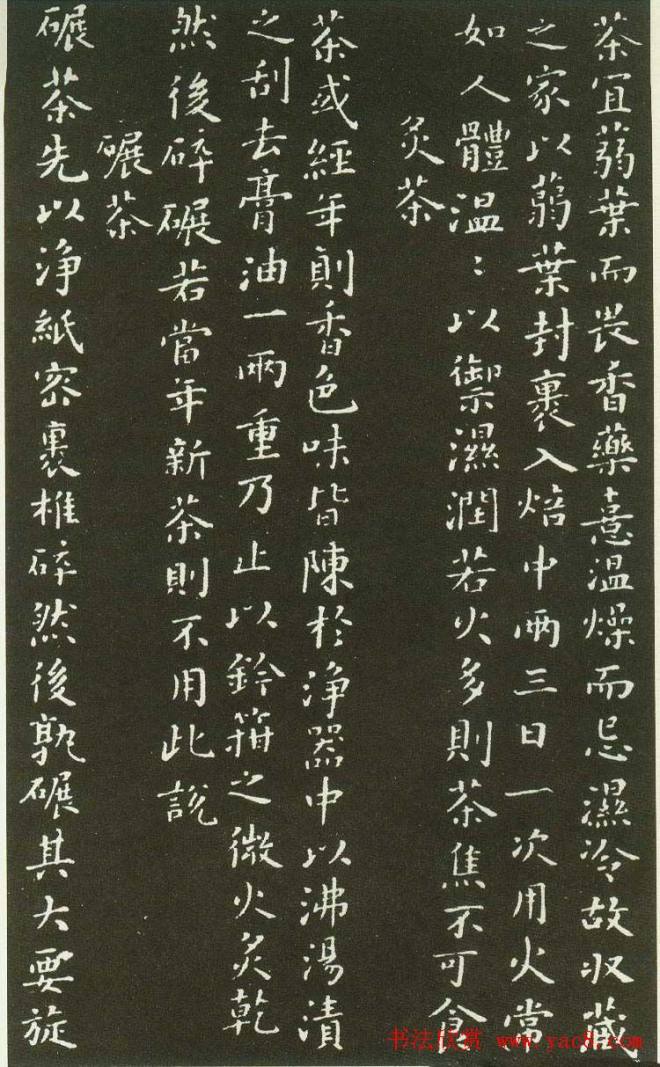 茶宜蒻葉而畏香藥憙溫燥而忌濕冷故収藏
之家以蒻葉封裹入焙中兩三日一次用火常
如人體溫〻以禦濕潤若火多則茶焦不可食
炙茶
茶或經年則香色味皆陳於淨器中以沸湯漬
之刮去膏油一兩重乃止以鈐箝之微火炙乾
然後碎碾若當年新茶則不用此說
碾茶
碾茶先以淨紙密裹椎碎然後孰碾其大要旋
书法欣赏 www.yac8.com